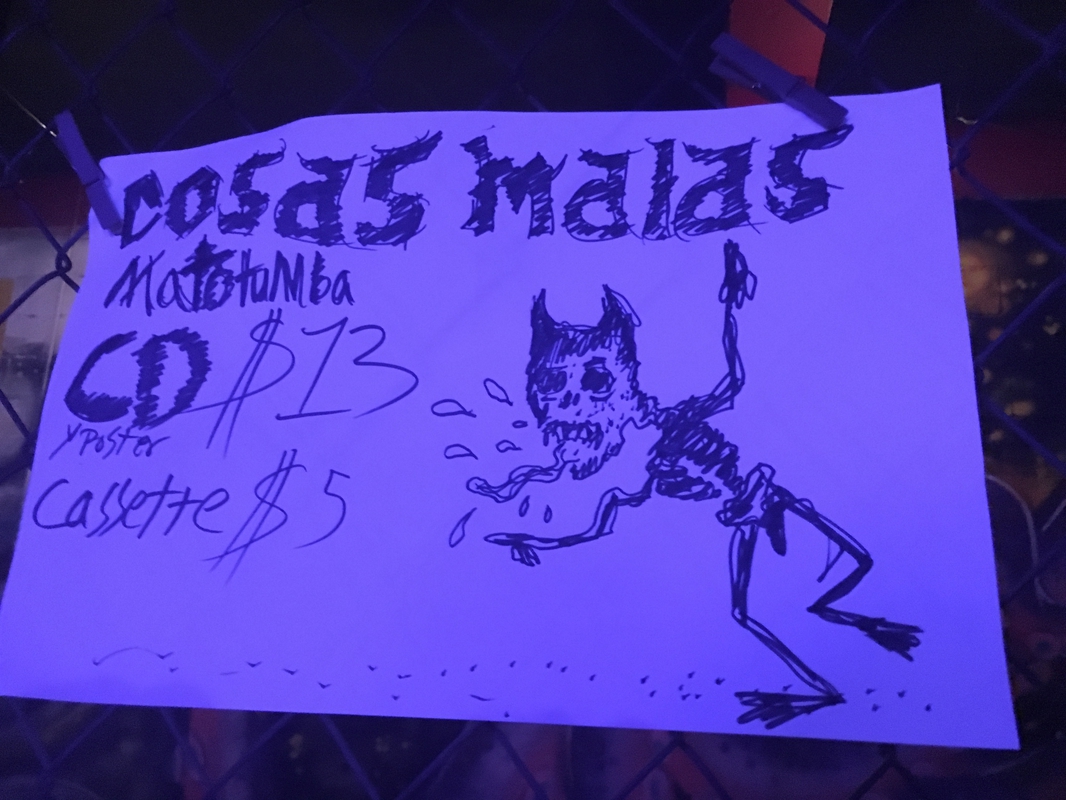 cosas malas
Matatumba
CD $13
y Poster
Cassette $5